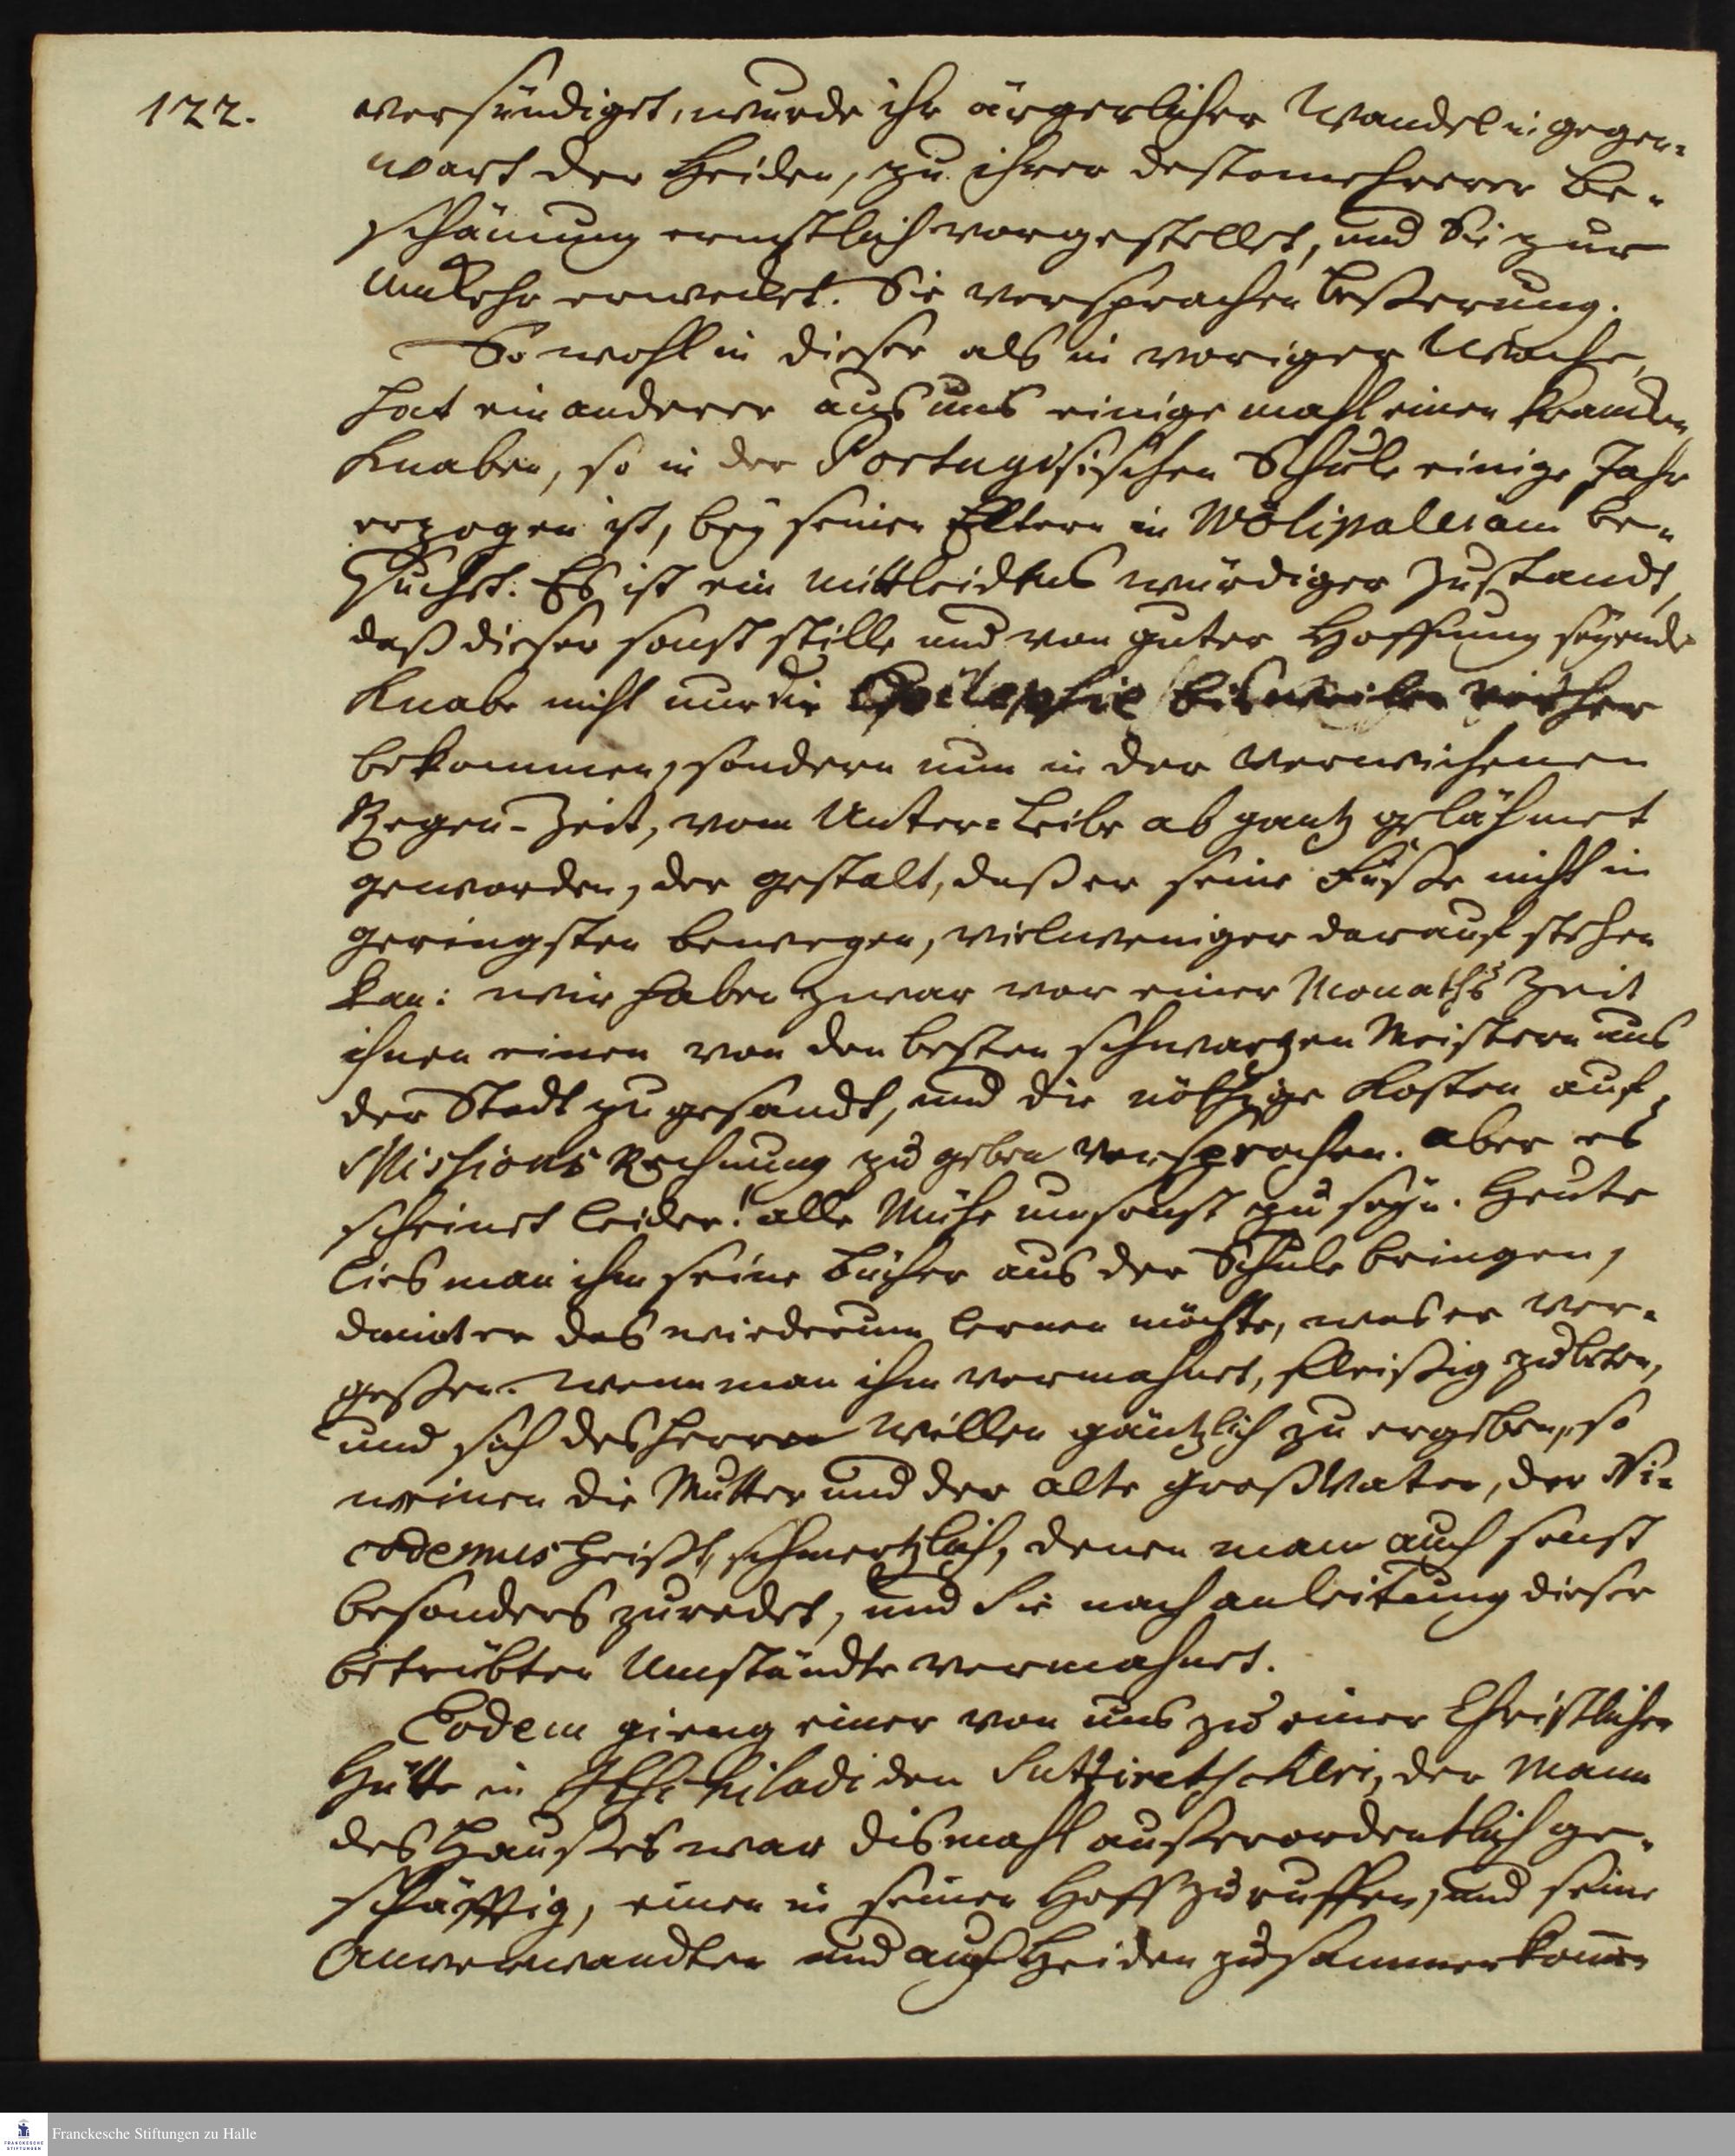 122.
versündiget, wurde ihr ärgerlicher Wandel in gegen-
wart der Heiden, zu ihrer destomehrerer Be-
schämung ernstlich vorgestellet, und Sie zur
Umkehr erwecket. Sie versprachen beßerung.
So wohl in dieser als in voriger Woche,
hat ein anderer aus uns einige mahl einen krancken
Knaben, so in der Portugisischen Schule einige Jahr
erzogen ist, bey seinen Eltern in Wölipaleiam be-
suchet. Es ist ein mittleidens würdiger Zustandt,
daß dieser sonst stille und von guter Hoffnung seyende
Knabe nicht nur die Epilepsie bisweilen bisher
bekommen, sondern nun in der verwichenen
Regen-Zeit, vom Unter-Leibe ab gantz gelähmet
geworden, der gestalt, daß er seine Füße nicht in
geringsten bewegen, vielweniger darauf stehen
kan: wir haben zwar vor einer Monaths Zeit
ihnen einen von den besten schwartzen Meistern aus
der Stadt zu gesandt, und die nöthige Kosten auf
Missions Rechnung zu geben versprochen. Aber es
scheinet leider! alle Mühe umsonst zu seyn. Heute
lies man ihm seine Bücher aus der Schule bringen,
damit er das wiederum lernen möchte, was er ver-
geßen. Wenn man ihn vermahnet, fleißig zu beten,
und sich des Herren Willen gäntzlich zu ergeben, so
weinen die Mutter und der alte Großvater, der Ni-
codemus heißt, schmertzlich, denen man auch sonst
besonders zuredet, und Sie nach anleitung dieser
betrübten Umstände vermahnet.
Eodem gieng einer von uns zu einer Christlichen
Hütte in den der Mann
des Haußes war dismahl außerordentlich ge-
schäfftig, einen in seinen Hoff zu ruffen, und seine
Anverwandten und auch Heiden zusammenkommen
Franckesche Stiftungen zu Halle
FRANCKESCHE
STIFTUNGEN